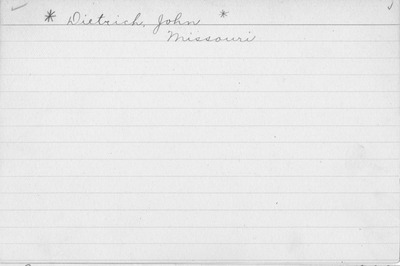 * Dietrich, John *
Missouri